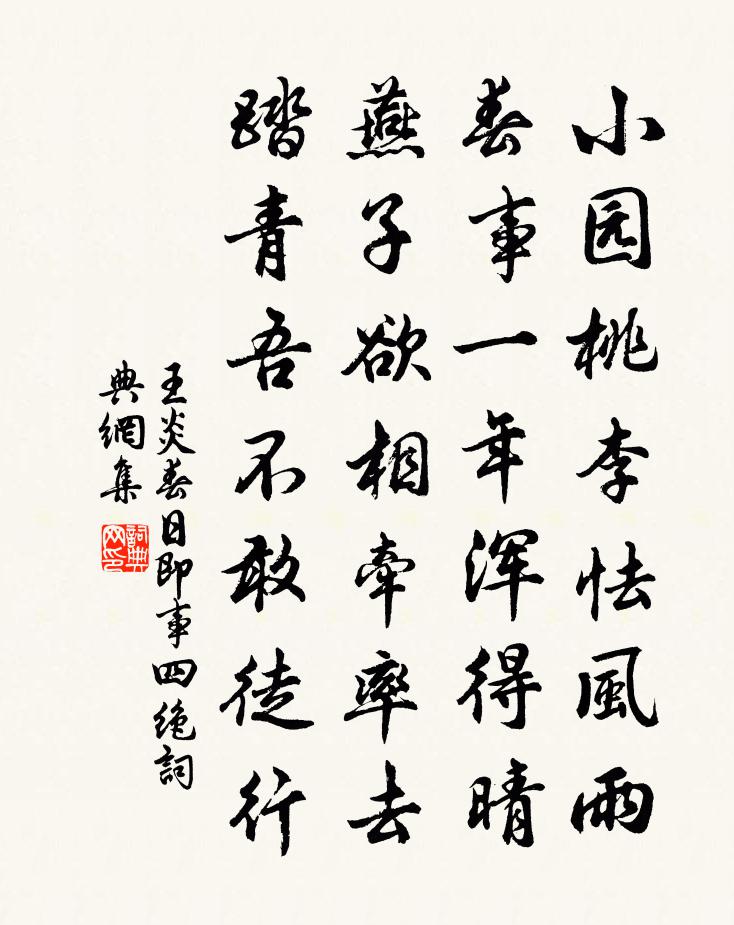 小园桃李怯風雨
春事一年浑得晴
燕子欲相牽率去
踏青吾不敢徒行
王炎春日即事四绝詞
典網集
詞典网印